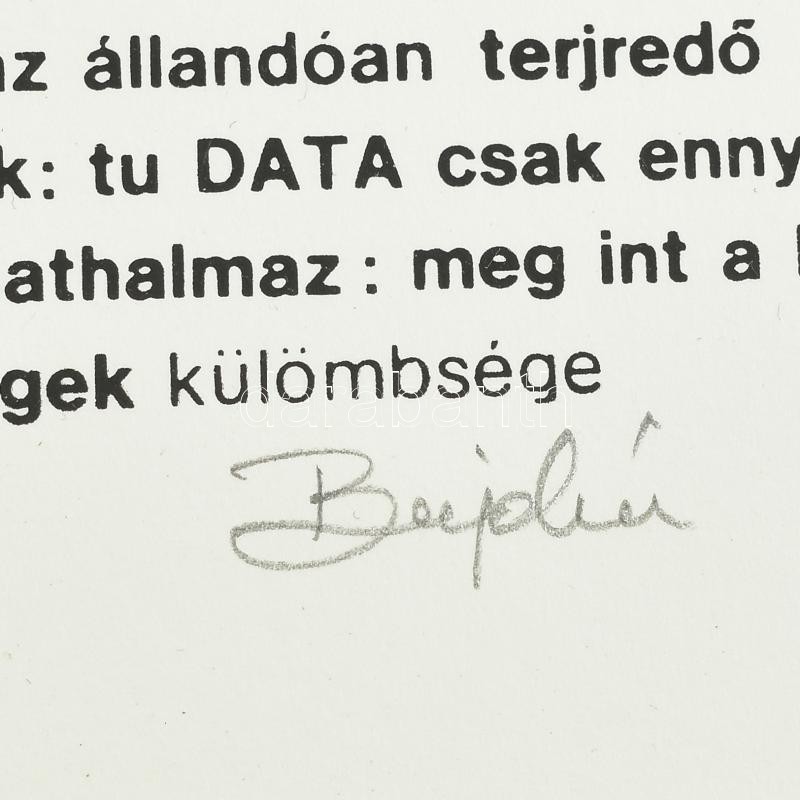 az állandóan terjredő
k: tu DATA csak enny
athalmaz: meg int a
gek külömbsége
darabanth